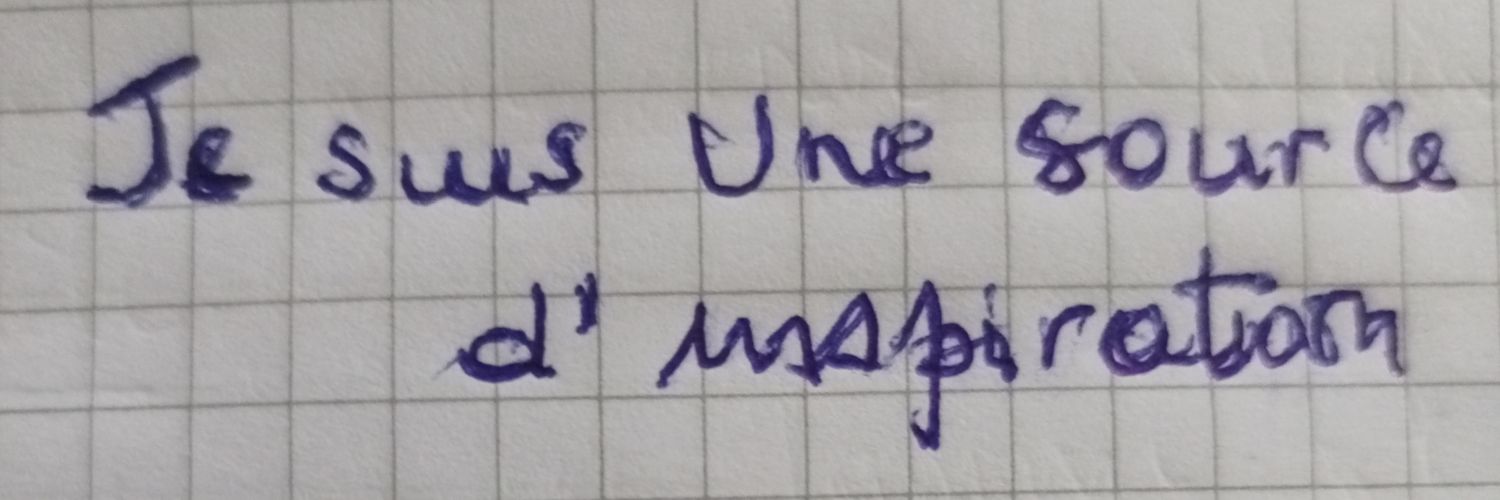 Je suis Une source
d'inspiration